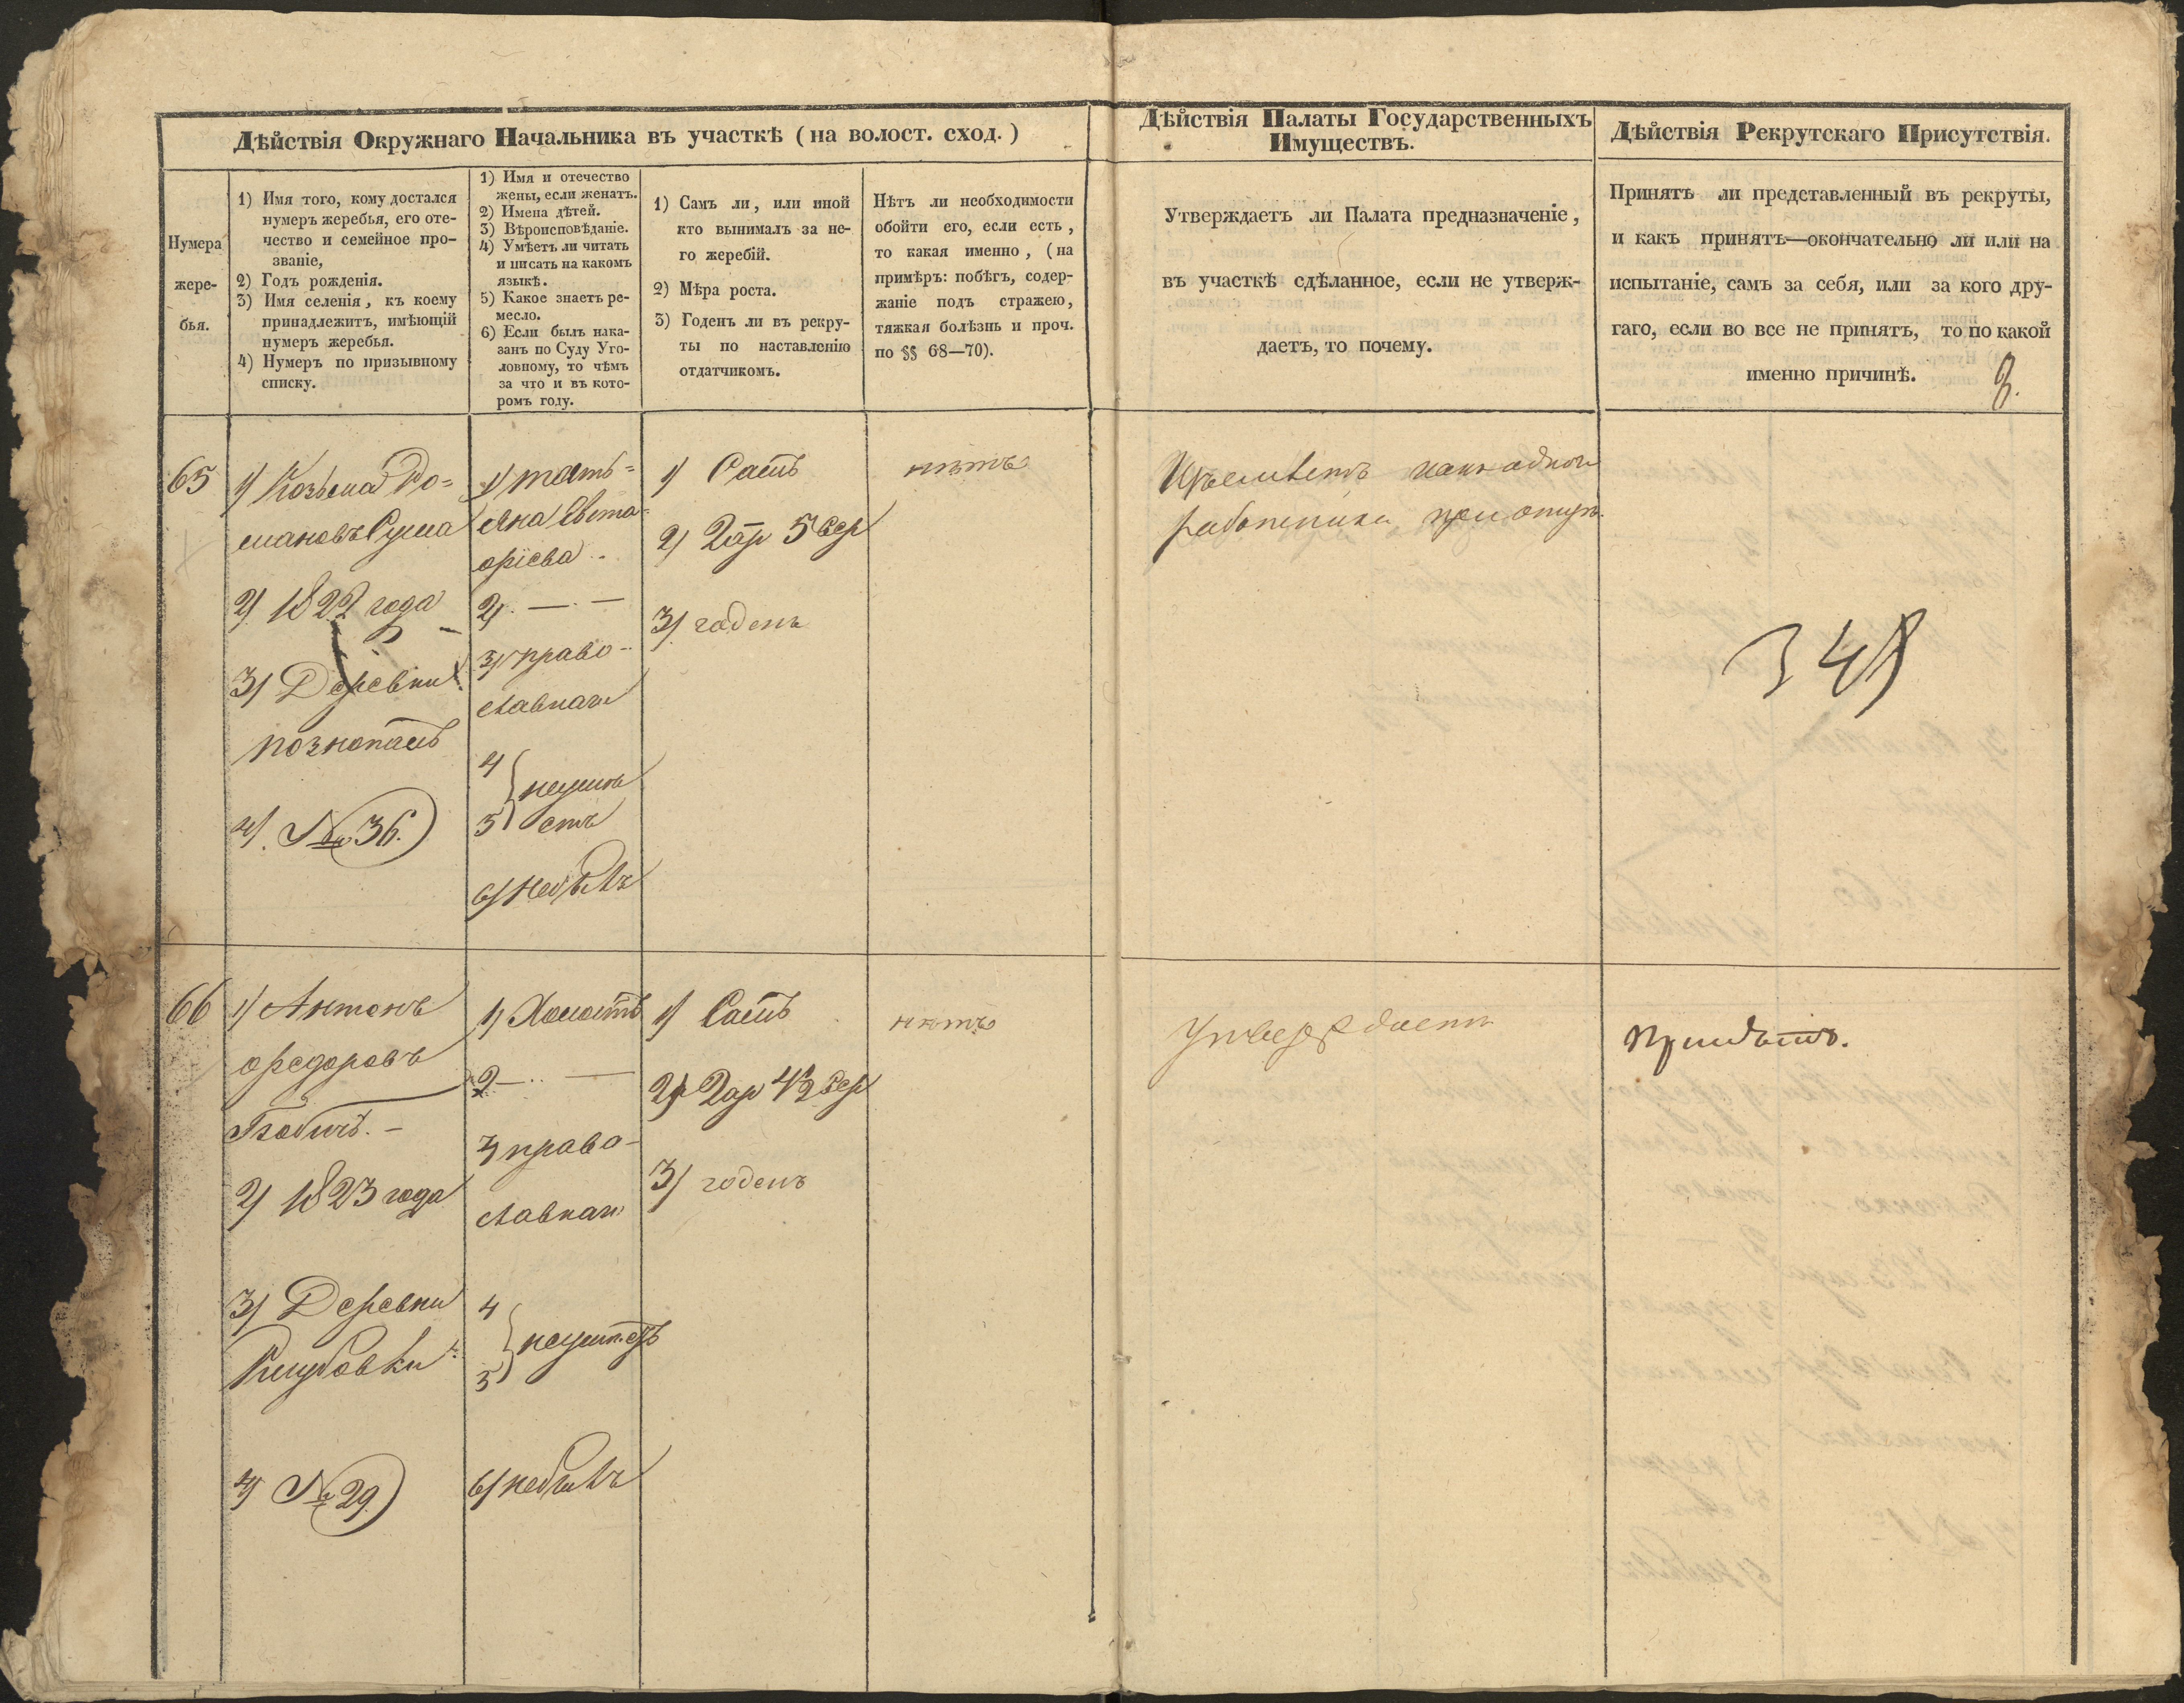 Дѣйствія Окружнаго Начальника въ участкѣ (на волост. сход.)
Дѣйствія Палаты Государственныхъ
Имуществъ.
Дѣйствія Рекрутскаго Присутствія.
Нумера
жере-
бья.
1) Имя того, кому достался
нумеръ жеребья, его оте-
чество и семейное про-
званіе,
2) Годъ рожденія.
3) Имя селенія, къ коему
принадлежитъ, имѣющій
нумеръ жеребья.
4) Нумеръ по призывному
списку.
1) Имя и отечество
жены, если женатъ.
2) Имена дѣтей.
3) Вѣроисповѣданіе.
4) Умѣетъ ли читать
и писать на какомъ
языкѣ.
5) Какое знаетъ ре-
месло.
6) Если былъ нака-
занъ по Суду Уго-
ловному, то чѣмъ
за что и въ кото-
ромъ году.
1) Самъ ли, или иной
кто вынималъ за не-
го жеребій.
2) Мѣра роста.
3) Годенъ ли въ рекру-
ты по наставленію
отдатчикомъ.
Нѣтъ ли необходимости
обойти его, если есть,
то какая именно, (на
примѣръ: побѣгъ, содер-
жаніе подъ стражею,
тяжкая болѣзнь и проч.
по §§ 68—70).
Утверждаетъ ли Палата предназначеніе,
въ участкѣ сдѣланное, если не утверж-
даетъ, то почему.
Принятъ ли представленный въ рекруты,
и какъ принятъ—окончательно ли или на
испытаніе, самъ за себя, или за кого дру-
гаго, если во все не принятъ, то по какой
именно причинѣ.
8.
65
1) Козьма Ро=
мановъ Сума
2) 1822 года
3) Деревни
4). № 36.
1)
2). — . —
3) право-
славнаго
4
5
неумѣ
етъ
6) небылъ
1) Самъ
2) 2 ар 5 вер
3) годенъ
нѣтъ
работника
348
66
1) Антонъ
Федоровъ
2) 1823 года
3) Деревни
4) № 29.
1) Холостъ
2 — .. —
3 право-
славнаго
4
5
неумѣетъ
6) небылъ
1) Самъ
2) 2 ар 4½ вер
3) годенъ
нѣтъ
Утверждаетъ